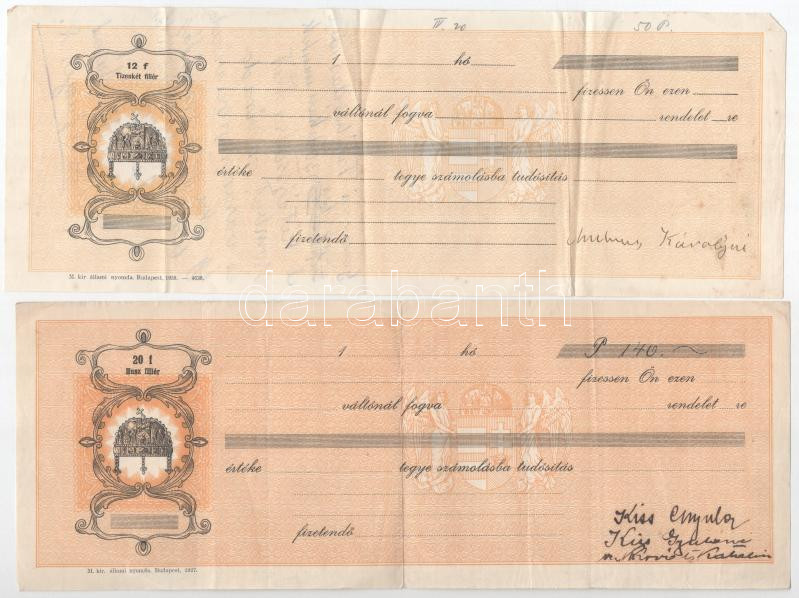 IV. 20 50 P.
12 f
Tizenkét fillér
1 hó
fizessen Ön ezen
váltónál fogva rendelet re
értéke tegye számolásba tudósítás
fizetendő
Károlyné
M. kir. állami nyomda. Budapest, 1938. —
darabanth
20 f
Husz fillér
1 hó P 140.
fizessen Ön ezen
váltónál fogva rendelet re
értéke tegye számolásba tudósítás
fizetendő
Kiss Gyula
Kiss Gyuláné
M. kir. állami nyomda. Budapest, 1937.